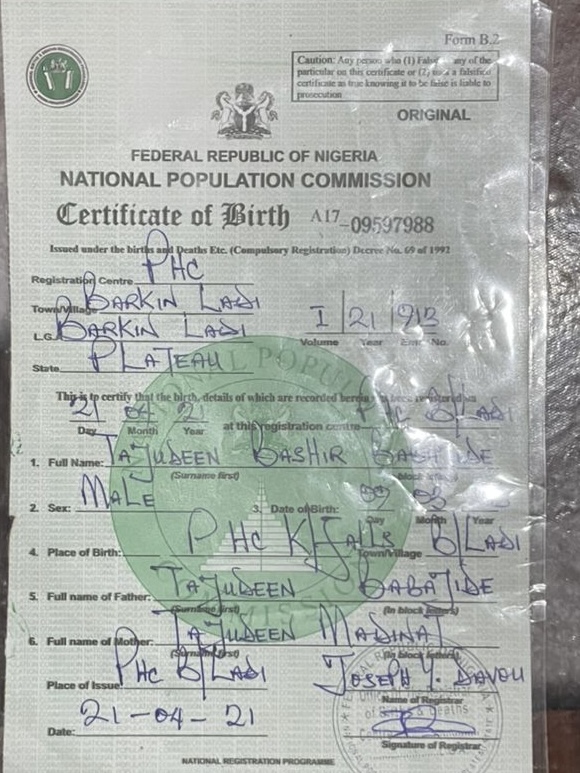 Form B.2
Caution: Any person who (1) Falsi any of the
particular on this certificate or (2) uses a falsified
certificate as true knowing it to be false is liable to
prosecution
ORIGINAL
FEDERAL REPUBLIC OF NIGERIA
NATIONAL POPULATION COMMISSION
Certificate of Birth A17-09597988
Issued under the births and Deaths Etc. (Compulsory Registration) Decree No. 69 of 1992
Registration Centre PHC
Town/Village BARKIN LADI
L.G.A BARKIN LADI I 21 913
Volume Year Entry No.
State PLATEAU
This is to certify that the birth, details of which are recorded herein has been registered on
21 04 21 at this registration centre PHC B/LADI
Day Month Year
1. Full Name: TAJUDEEN BASHIR
(Surname first) (In block letters)
2. Sex: MALE 3. Date of Birth:
Day Month Year
4. Place of Birth: PHC K/FALLS B/LADI
Town/Village
5. Full name of Father: TAJUDEEN BABAJIDE
(Surname first) (In block letters)
6. Full name of Mother: TAJUDEEN MADINAT
(Surname first) (In block letters)
Place of Issue: PHC B/LADI JOSEPH Y. DAVOU
Name of Registrar
Date: 21-04-21
Signature of Registrar
NATIONAL REGISTRATION PROGRAMME